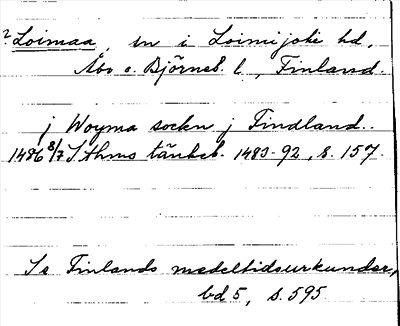 ? Loimaa, sn i Loimijoki hd,
Åbo o. Björneb. l., Finland.
j Woyma sockn j Findland..
1486 8/7 Sthms tänkeb. 1483-92, s. 157.
Se Finlands medeltidsurkunder,
bd 5, s. 595.